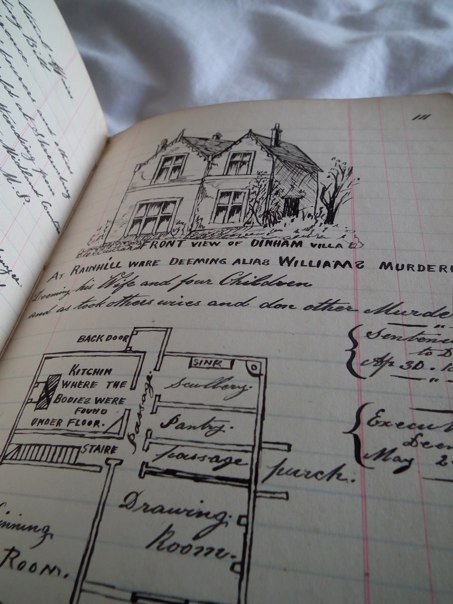 FRONT VIEW OF DINHAM VILLA
AT RAINHILL WARE DEEMING ALIAS WILLIAMS MURDER
Deeming his Wife and four Children
and as took others wives and don other Murder
Sentenc
to D
Ap 30.
Execut
Deem
May 2
BACK DOOR
SINK
KITCHIN
WHERE THE
BODIES WERE
FOUND
UNDER FLOOR.
passage
Scullery.
Pantry.
passage
STAIRE
purch.
Drawing
Room.
inning
ROOM.